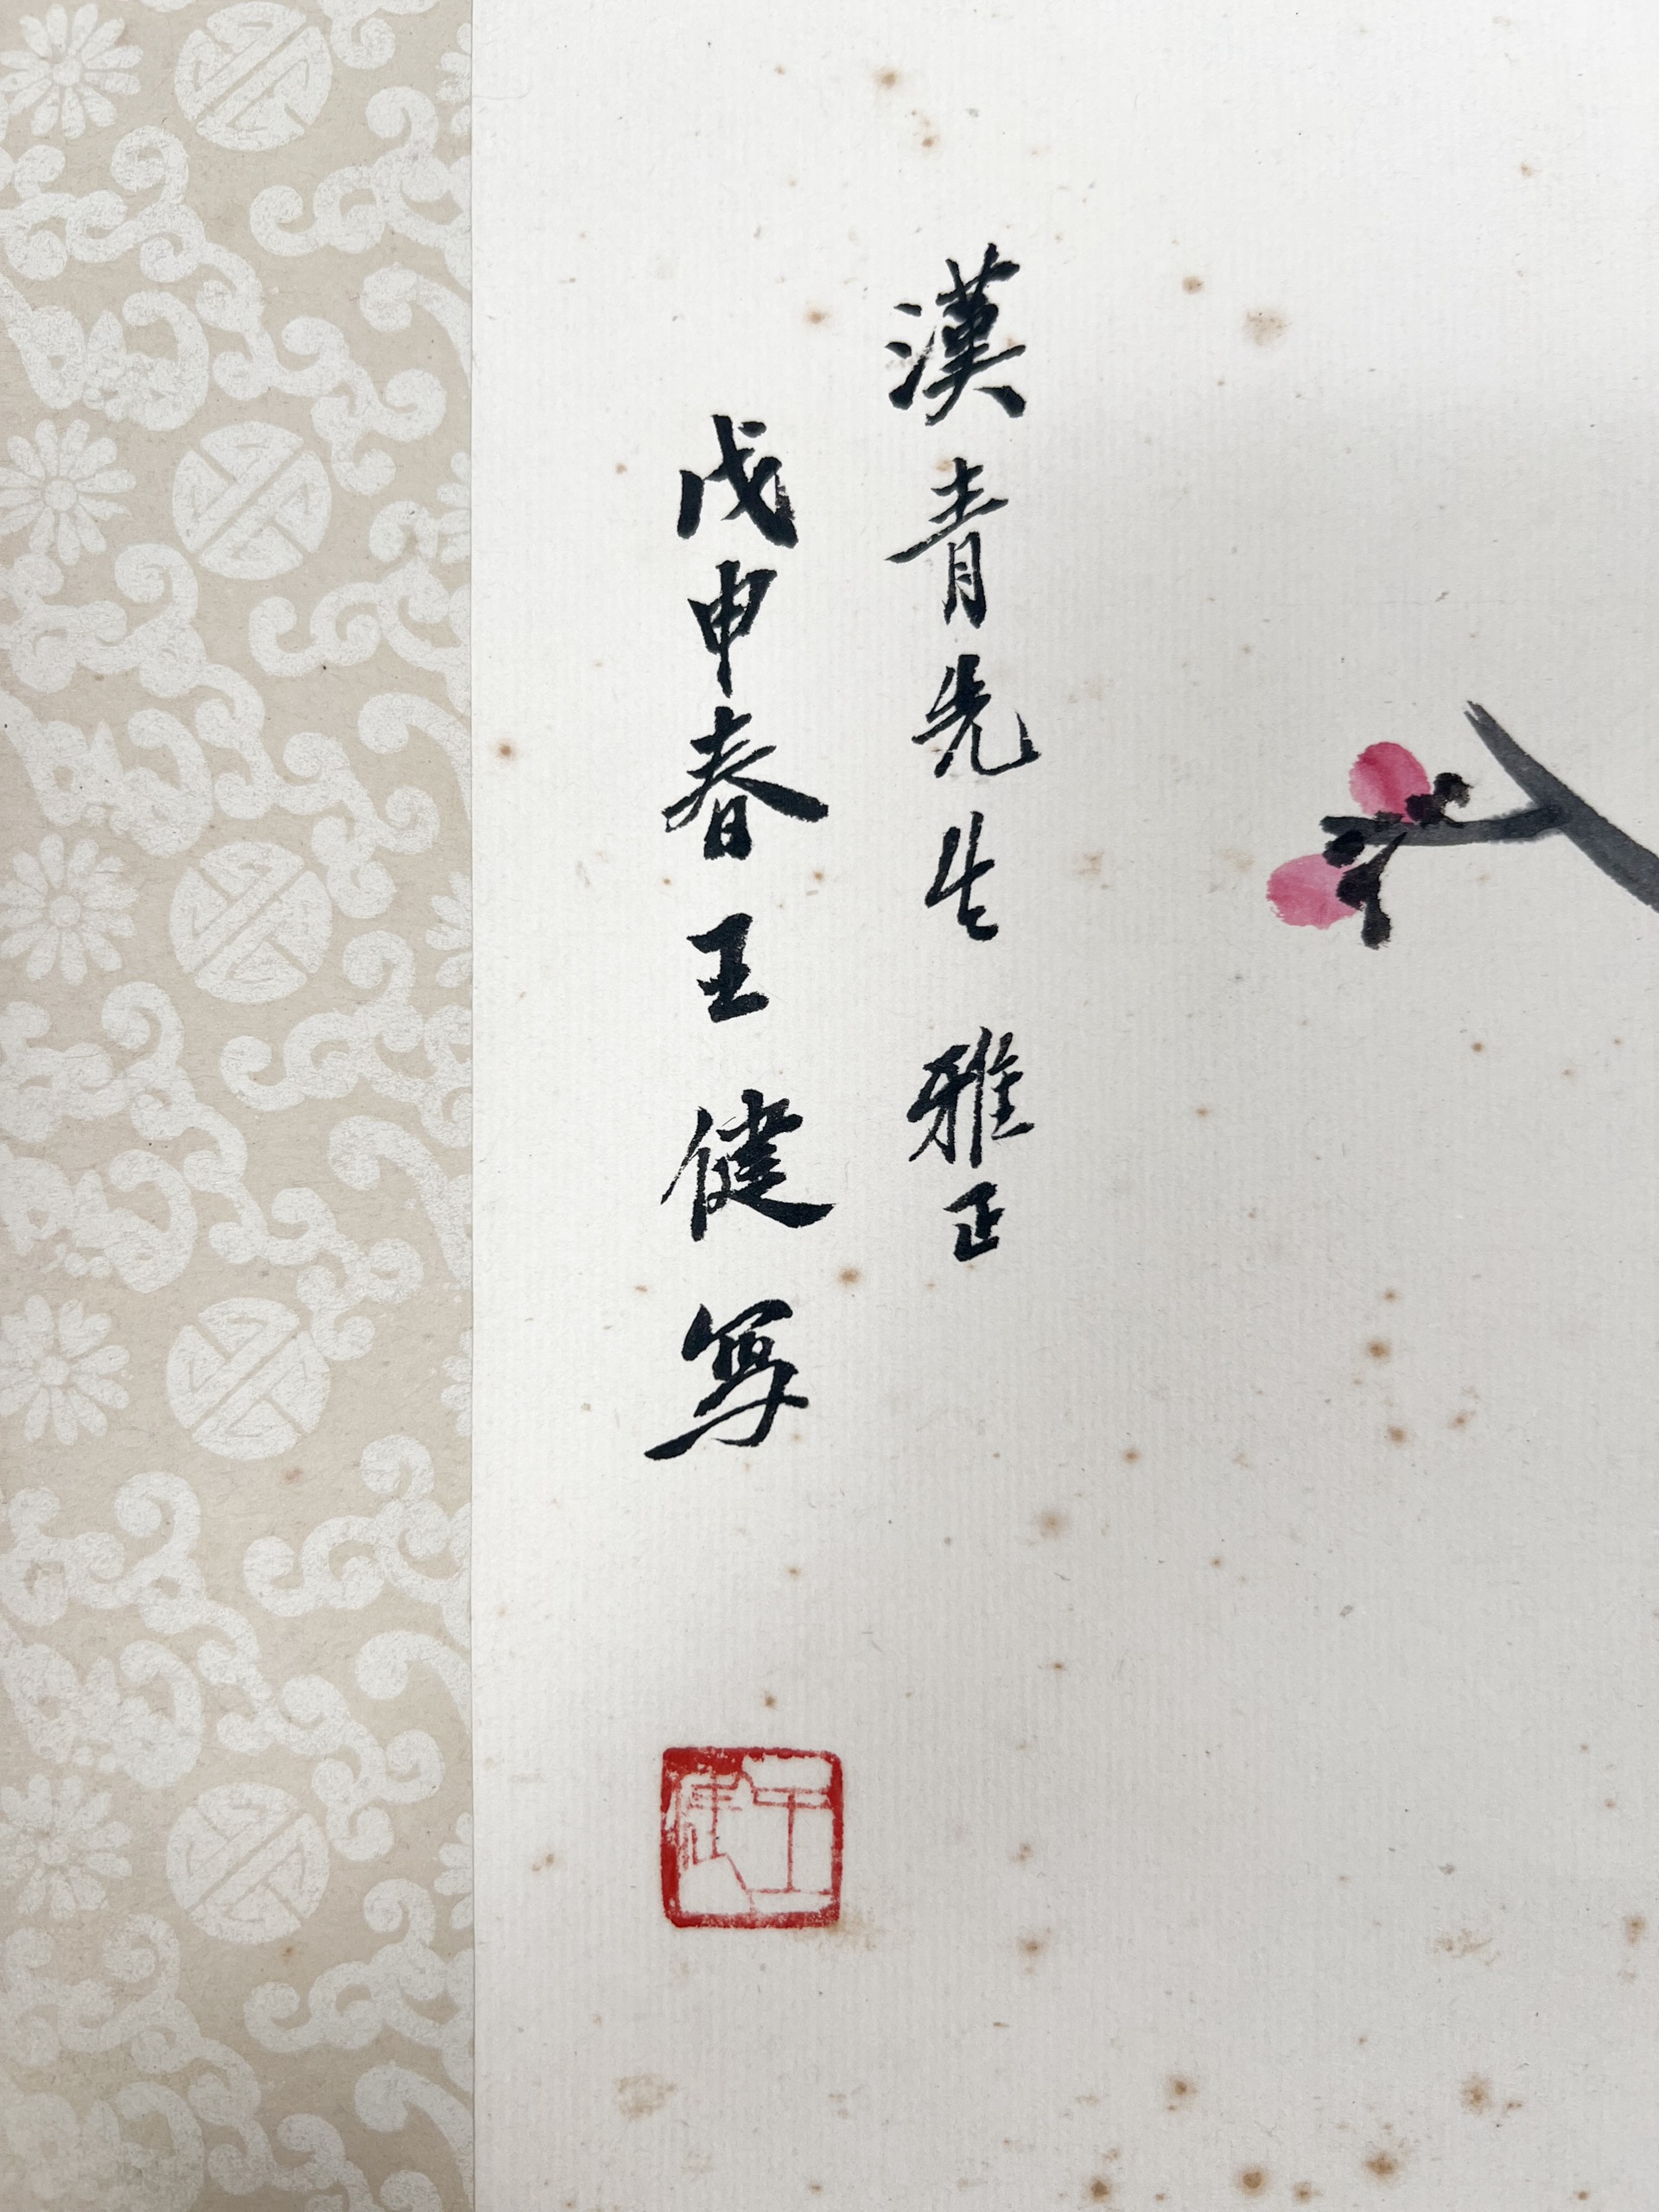 漢青先生雅正
戊申春王健写
王健